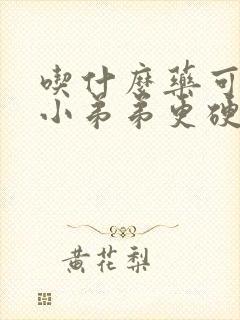 喫什麼藥可
小弟弟更硬
黃花梨